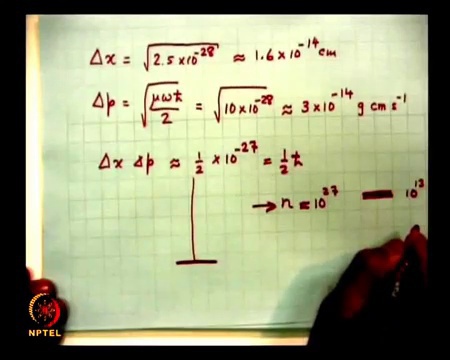 Δx = √2.5×10⁻²⁸ ≈ 1.6×10⁻¹⁴ cm
Δp = √μωħ/2 = √10×10⁻²⁸ ≈ 3×10⁻¹⁴ g cm s⁻¹
Δx Δp ≈ 1/2 × 10⁻²⁷ = 1/2 ħ
→ n ≈ 10²⁷ 10¹³
NPTEL